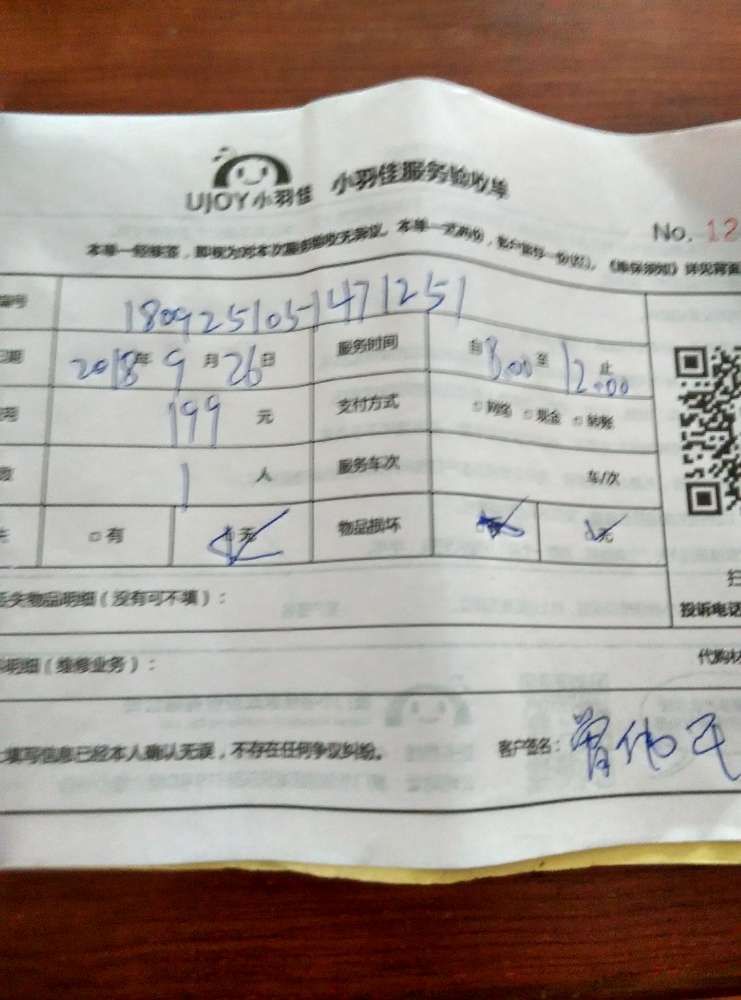 UJOY小羽佳 小羽佳服务验收单
No. 12
本单一经签签，即视为对本次服务验收无异议。本单一式两份，客户留存一份
详见背面
编号 1809251051471251
日期 2018年9月26日 服务时间 自8:00至12:00止
199元 支付方式 □网络 □现金 □转账
数 1人 服务车次 车/次
□有 无 物品损坏 无
丢失物品明细（没有可不填）：
扫
投诉电话
明细（维修业务）：
代购材
上填写信息已经本人确认无误，不存在任何争议纠纷。 客户签名：曾伟